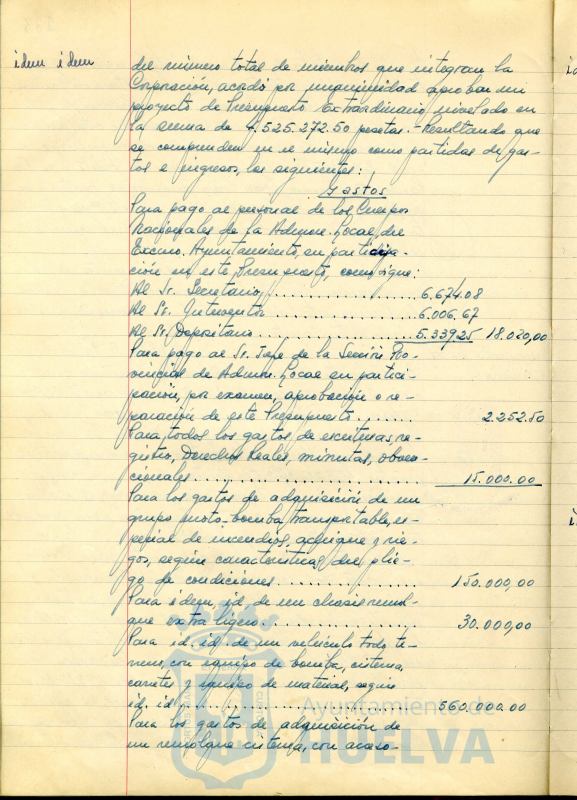 idem idem
del número total de miembros que integran la
Corporación, acordó por unanimidad aprobar un
proyecto de Presupuesto Extraordinario, nivelado en
la suma de 4.525.272.50 pesetas.- Resultando que
se comprenden en el mismo como partidas de gas-
tos e ingresos, los siguientes:
Gastos
Para pago al personal de los Cuerpos
Nacionales de la Admón. Local, del
Excmo. Ayuntamiento, en participa-
ción en este Presupuesto, como sigue:
Al Sr. Secretario ................ 6.674.08
Al Sr. Interventor ................ 6.006,67
Al Sr. Depositario ................ 5.339.25 18.020,00
Para pago al Sr. Jefe de la Sección Pro-
vincial de Admón. Local en partici-
pación, por examen, aprobación o re-
paración de este Presupuesto ....... 2.252.50
Para todos los gastos de escrituras, re-
gistro, Derechos Reales, minutas, obven-
cionales ........................ 15.000.00
Para los gastos de adquisición de un
grupo moto-bomba transportable, es-
pecial de incendios, achique y rie-
gos, según características del plie-
go de condiciones ................ 150.000,00
Para idem id. de un chasis remol-
que extra ligero ................ 30.000,00
Para id. id. de un vehículo todo te-
rreno, con equipo de bomba, cisterna,
carretes y equipo de material, según
id. id. ........................ 560.000.00
Para los gastos de adquisición de
un remolque cisterna, con acceso-
Ayuntamiento de
HUELVA